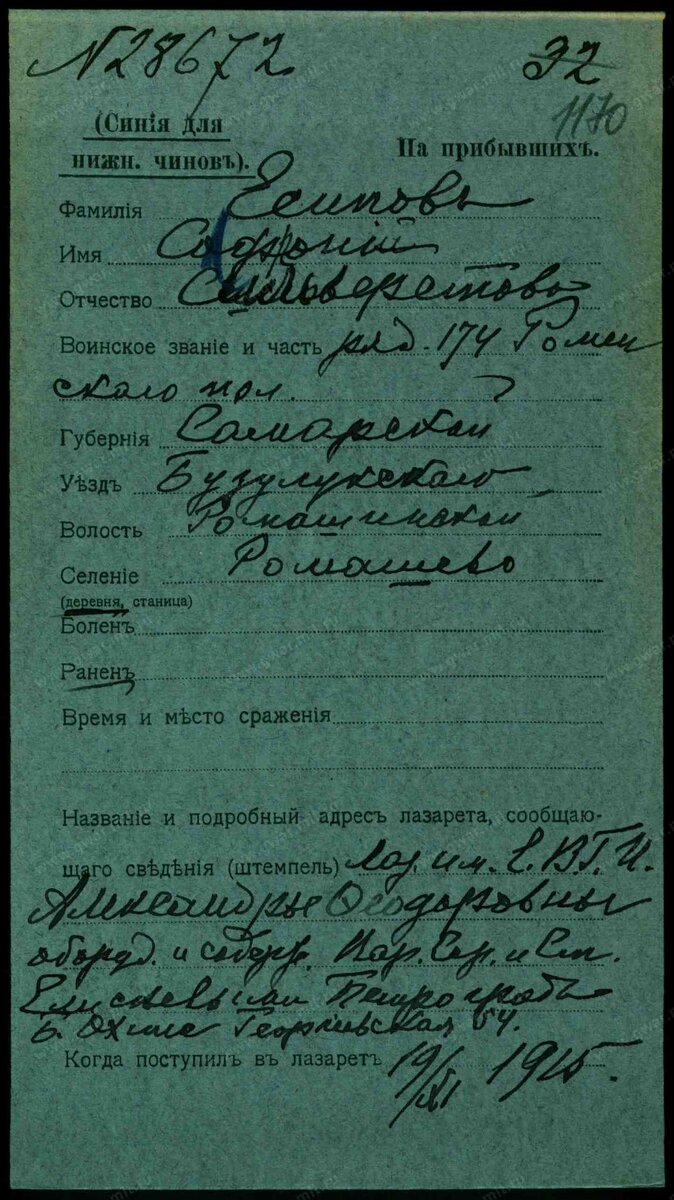 N28672 32
1170
(Синія для
нижн. чиновъ). На прибывшихъ.
Фамилія Есиповъ
Имя Софроній
Отчество Сильверстовъ
Воинское званіе и часть ряд. 174 Ромен
скаго пол.
Губернія Самарской
Уѣздъ Бузулукскаго
Волость Ромашинской
Селеніе Ромашево
(деревня, станица)
Боленъ
Раненъ
Время и мѣсто сраженія
Названіе и подробный адресъ лазарета, сообщаю-
щаго свѣдѣнія (штемпель) Лаз. им. Е. В. Г. И.
Александры Ѳеодоровны
оборуд. и содерж. Вар. Сер. и Ст.
Елисѣевыми Петроградъ
Б. Охта Георгіевская 54.
Когда поступилъ въ лазаретъ 19/XI 1915.